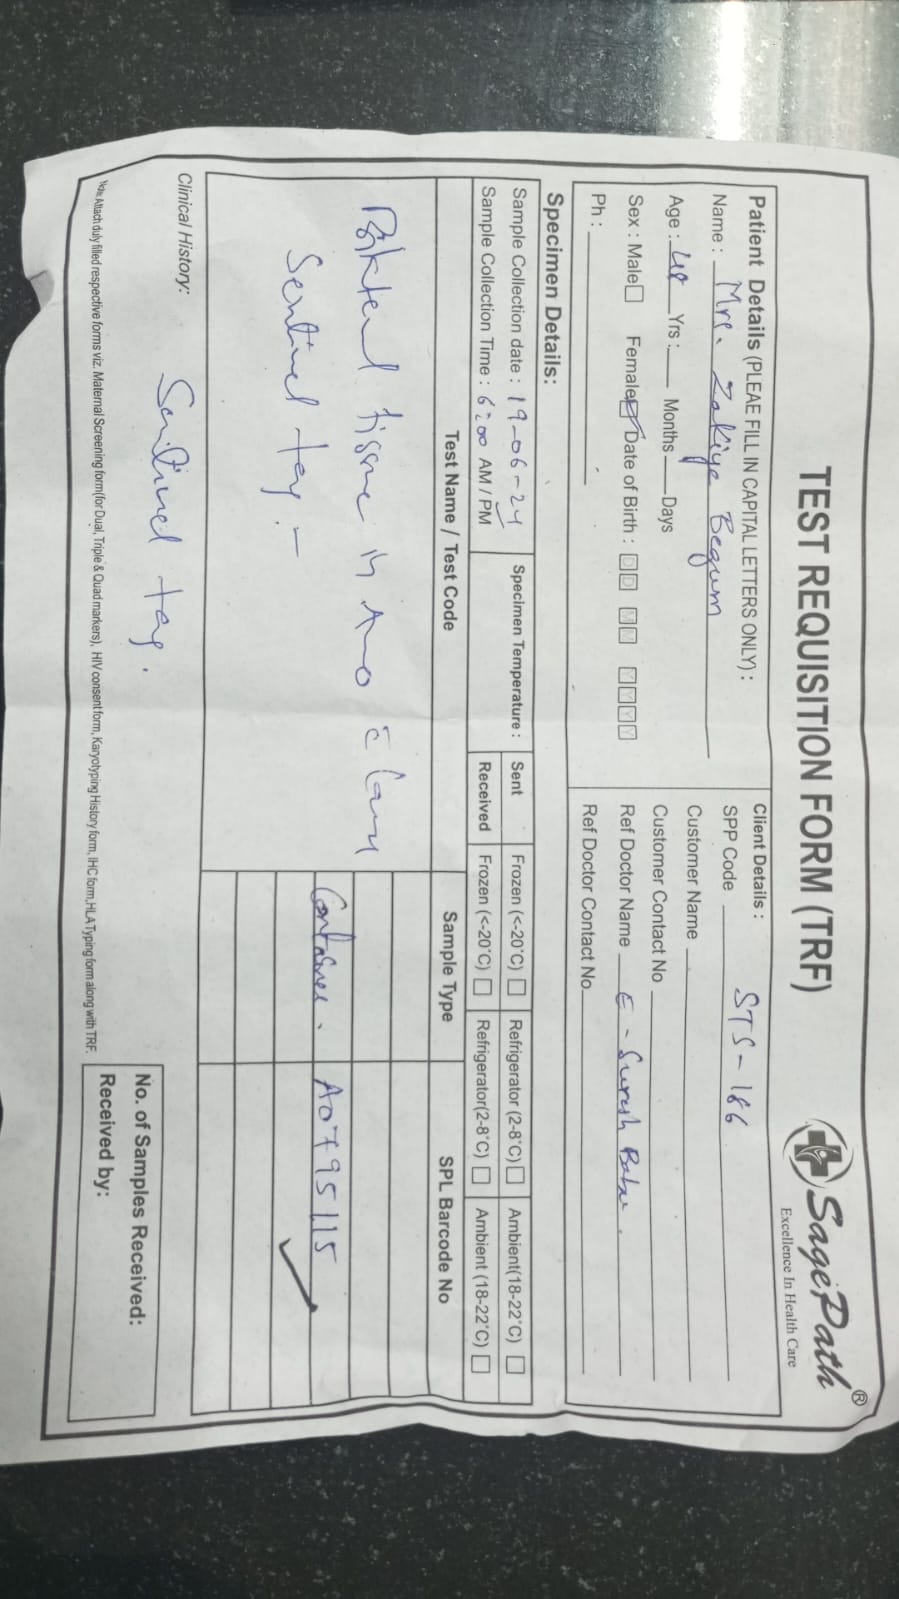 TEST REQUISITION FORM (TRF)
SagePath®
Excellence In Health Care
Patient Details (PLEAE FILL IN CAPITAL LETTERS ONLY) :
Name : Mrs. Zakiya Begum
Age : Yrs : Months Days
Sex : Male Female Date of Birth : D D M M Y Y Y Y
Ph :
Client Details :
SPP Code STS-186
Customer Name
Customer Contact No
Ref Doctor Name E - Suresh Babu.
Ref Doctor Contact No
Specimen Details:
Sample Collection date : 19-06-24
Sample Collection Time : 6:00 AM / PM
Specimen Temperature :
Sent Frozen (<-20°C) Refrigerator (2-8°C) Ambient(18-22°C)
Received Frozen (<-20°C) Refrigerator(2-8°C) Ambient (18-22°C)
Test Name / Test Code Sample Type SPL Barcode No
tissue
Sentinel tag -
Container. A0795115
Clinical History: Sentinel tag.
Note: Attach duly filled respective forms viz. Maternal Screening form(for Dual, Triple & Quad markers), HIV consent form, Karyotyping History form, IHC form,HLA Typing form along with TRF.
No. of Samples Received:
Received by: